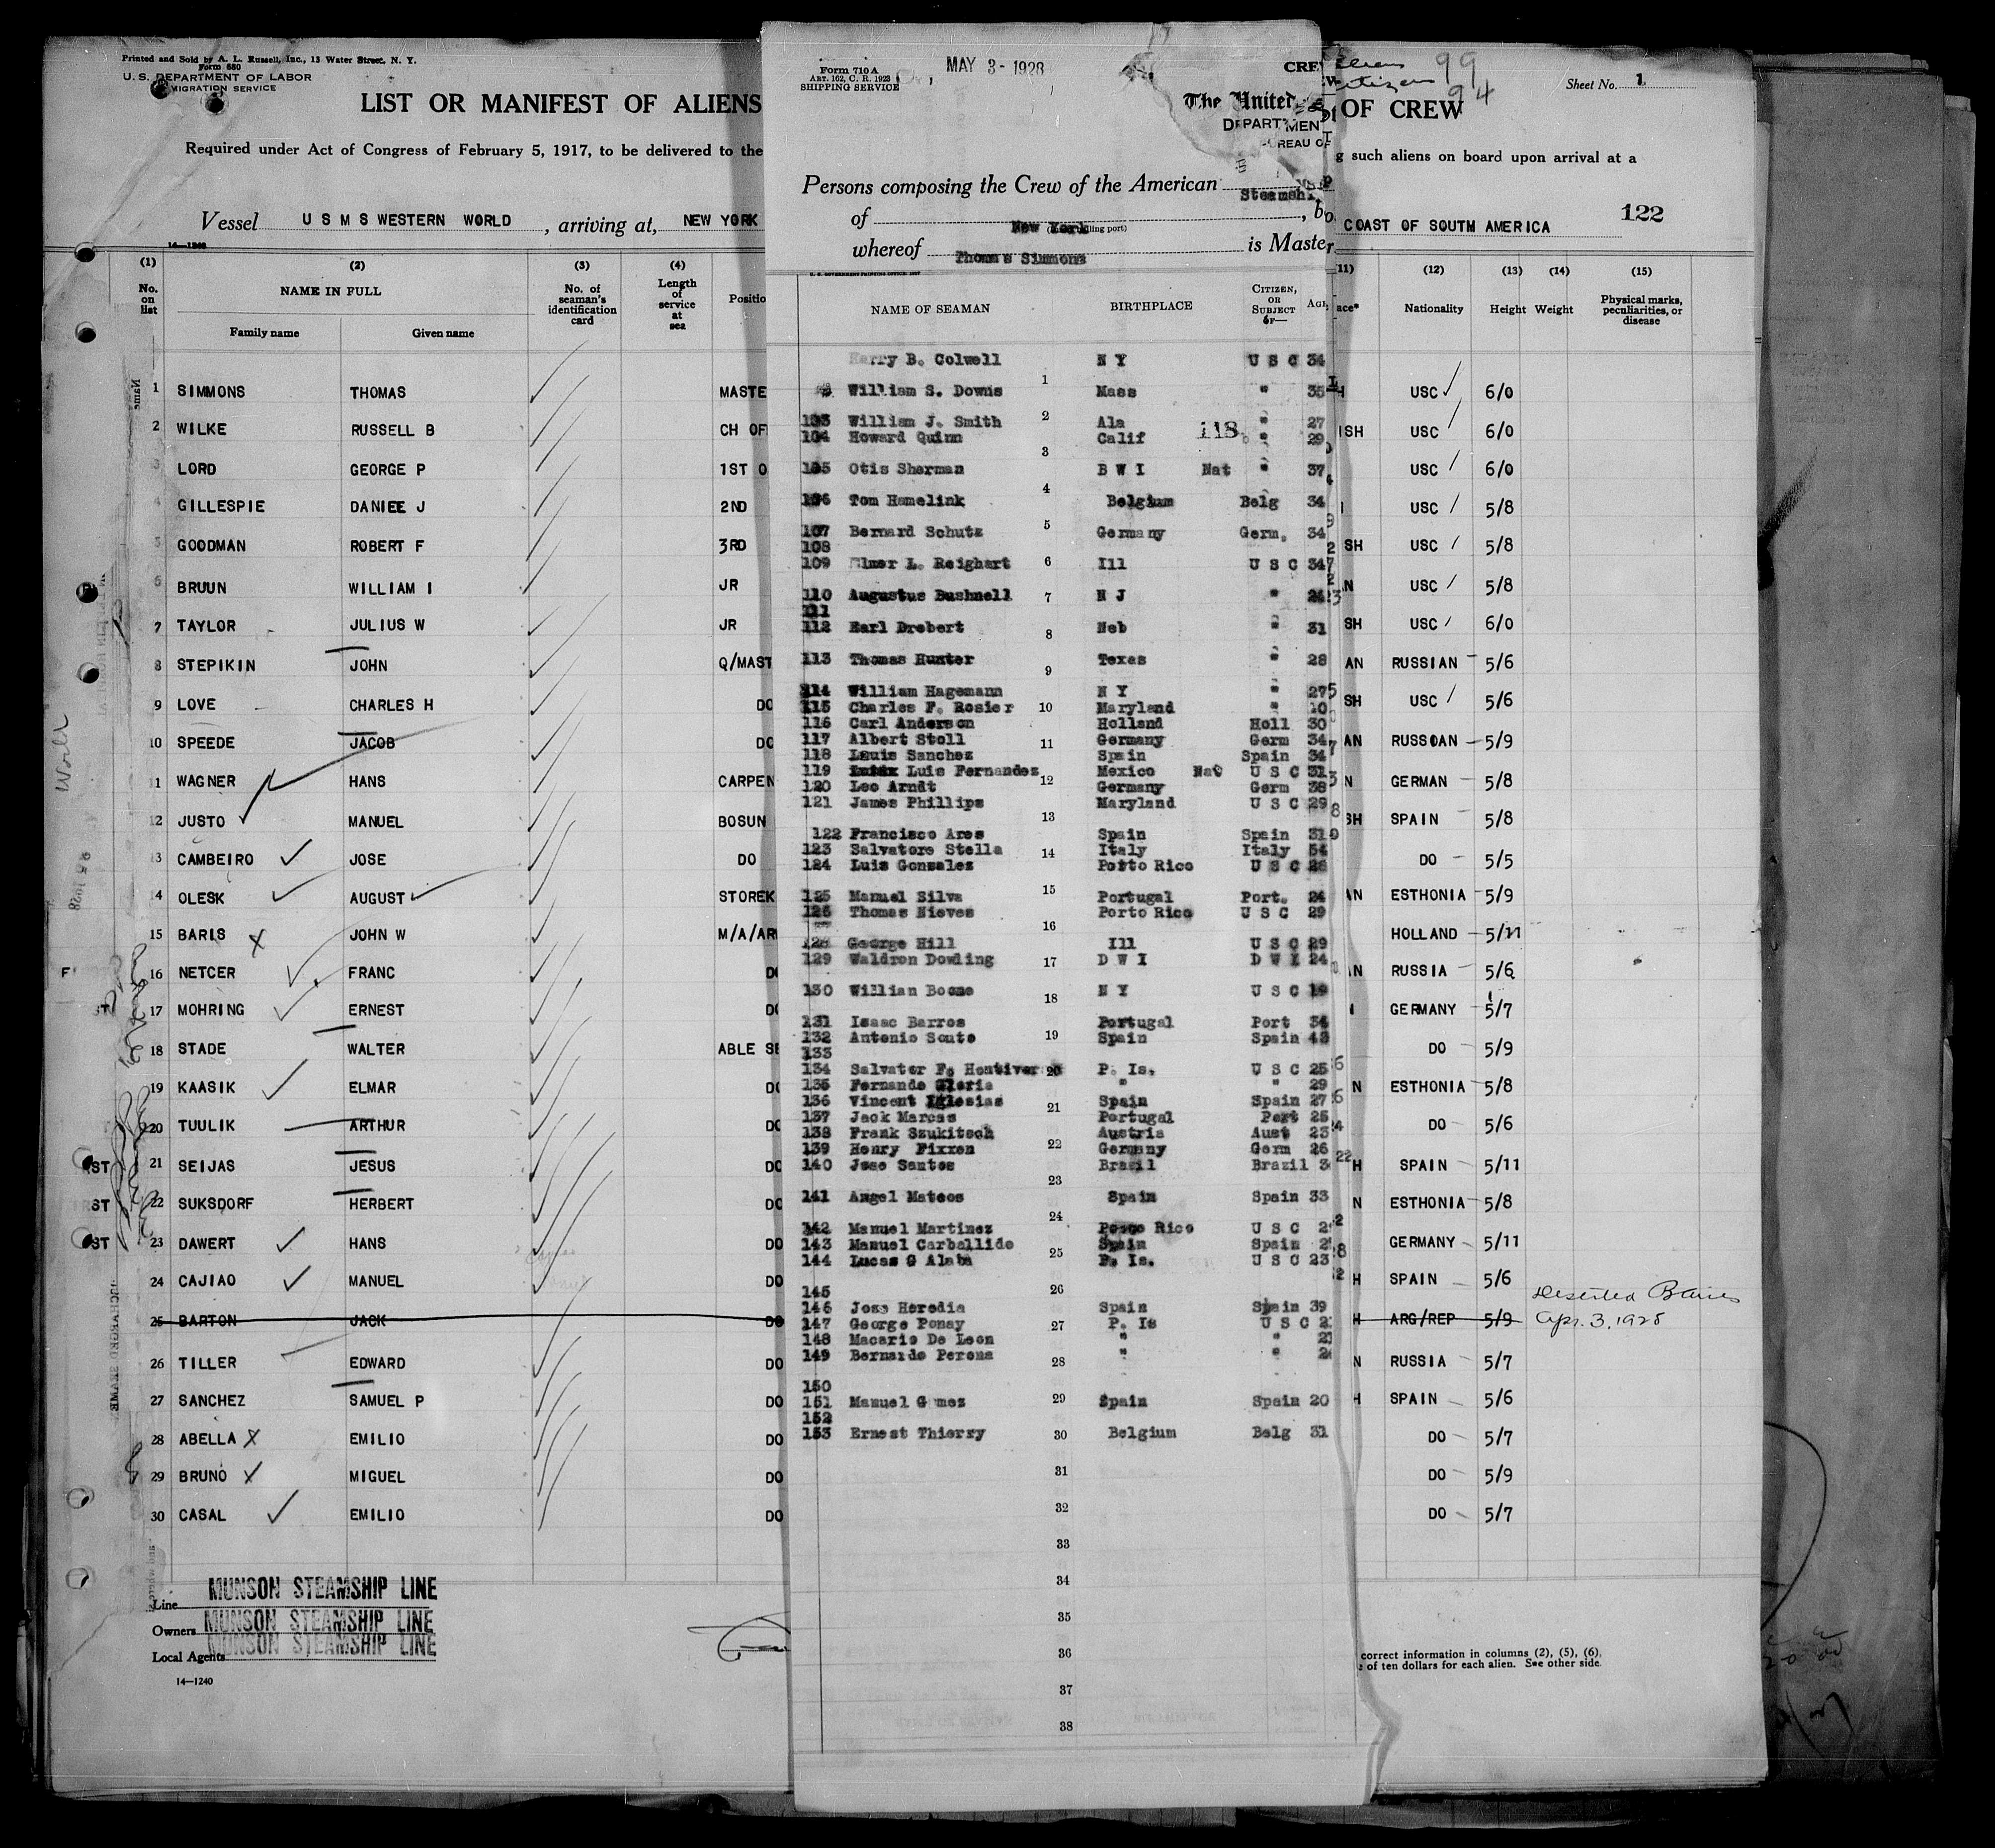 Printed and Sold by A. L. Russell, Inc., 13 Water Street, N. Y.
Form 680
U. S. DEPARTMENT OF LABOR
MIGRATION SERVICE
LIST OR MANIFEST OF ALIENS
Required under Act of Congress of February 5, 1917, to be delivered to the
Vessel U S M S WESTERN WORLD , arriving at, NEW YORK
14—1240
(1) (2) (3) (4)
No. on list NAME IN FULL No. of seaman's identification card Length of service at sea Positio
Family name Given name
1 SIMMONS THOMAS MASTE
2 WILKE RUSSELL B CH OF
3 LORD GEORGE P 1ST O
4 GILLESPIE DANIEE J 2ND
5 GOODMAN ROBERT F 3RD
6 BRUUN WILLIAM I JR
7 TAYLOR JULIUS W JR
8 STEPIKIN JOHN Q/MAST
9 LOVE CHARLES H DO
10 SPEEDE JACOB DO
11 WAGNER HANS CARPEN
12 JUSTO MANUEL BOSUN
13 CAMBEIRO JOSE DO
14 OLESK AUGUST STOREK
15 BARIS JOHN W M/A/AR
16 NETCER FRANC DO
17 MOHRING ERNEST DO
18 STADE WALTER ABLE SE
19 KAASIK ELMAR DO
20 TUULIK ARTHUR DO
21 SEIJAS JESUS DO
22 SUKSDORF HERBERT DO
23 DAWERT HANS DO
24 CAJIAO MANUEL DO
25 BARTON JACK DO
26 TILLER EDWARD DO
27 SANCHEZ SAMUEL P DO
28 ABELLA EMILIO DO
29 BRUNO MIGUEL DO
30 CASAL EMILIO DO
Line MUNSON STEAMSHIP LINE
Owners MUNSON STEAMSHIP LINE
Local Agents MUNSON STEAMSHIP LINE
14—1240
Form 710 A
ART. 162, C. R. 1923
SHIPPING SERVICE
MAY 3 - 1928
CRE
The United
DEPARTMEN
UREAU OF
Persons composing the Crew of the American Steamshi
of New York , bo
whereof Thomas Simmons is Master
U. S. GOVERNMENT PRINTING OFFICE: 1927
NAME OF SEAMAN BIRTHPLACE CITIZEN, OR SUBJECT OF— AGE
Harry B. Colwell N Y U S C 34
William S. Downs Mass " 35
103 William J. Smith Ala " 27
104 Howard Quinn Calif 118 " 29
105 Otis Sherman B W I Nat " 37
106 Tom Hamelink Belgium Belg 34
107 Bernard Schutz Germany Germ. 34
108
109 Elmer L. Reighart Ill U S C 34
110 Augustus Bushnell N J " 24
111
112 Earl Drebert Neb " 31
113 Thomas Hunter Texas " 28
114 William Hagemann N Y " 27
115 Charles F. Rosier Maryland " 10
116 Carl Anderson Holland Holl 30
117 Albert Stoll Germany Germ 34
118 Louis Sanchez Spain Spain 34
119 Luis Fernandez Mexico Nat U S C 31
120 Leo Arndt Germany Germ 38
121 James Phillips Maryland U S C 29
122 Francisco Ares Spain Spain 31
123 Salvatore Stella Italy Italy 54
124 Luis Gonzalez Porto Rico U S C 26
125 Manuel Silva Portugal Port. 24
126 Thomas Nieves Porto Rico U S C 29
128 George Hill Ill U S C 29
129 Waldron Dowling D W I D W I 24
130 Willian Boone N Y U S C 19
131 Isaac Barros Portugal Port 34
132 Antonio Souto Spain Spain 43
133
134 Salvator F. Hontiver P. Is. U S C 25
135 Fernando Gloria " " 29
136 Vincent Iglesias Spain Spain 27
137 Jack Marcas Portugal Port 25
138 Frank Szukitsch Austria Aust 23
139 Henry Fixren Germany Germ 26
140 Jose Santos Brazil Brazil 3
141 Angel Mateos Spain Spain 33
142 Manuel Martinez Porto Rico U S C 2
143 Manuel Carballido Spain Spain 2
144 Lucas G Alaba P. Is. U S C 23
145
146 Jose Heredia Spain Spain 39
147 George Ponay P. Is U S C 2
148 Macario De Leon " " 2
149 Bernardo Perona " " 2
150
151 Manuel Gomez Spain Spain 20
152
153 Ernest Thierry Belgium Belg 31
1
2
3
4
5
6
7
8
9
10
11
12
13
14
15
16
17
18
19
20
21
22
23
24
25
26
27
28
29
30
31
32
33
34
35
36
37
38
99
94
Sheet No. 1
OF CREW
g such aliens on board upon arrival at a
COAST OF SOUTM AMERICA 122
11) (12) (13) (14) (15)
ace* Nationality Height Weight Physical marks, peculiarities, or disease
H USC 6/0
ISH USC 6/0
USC 6/0
USC 5/8
SH USC 5/8
N USC 5/8
SH USC 6/0
AN RUSSIAN 5/6
SH USC 5/6
AN RUSSOAN 5/9
N GERMAN 5/8
SH SPAIN 5/8
DO 5/5
AN ESTHONIA 5/9
HOLLAND 5/11
AN RUSSIA 5/6
GERMANY 5/7
DO 5/9
N ESTHONIA 5/8
DO 5/6
H SPAIN 5/11
N ESTHONIA 5/8
GERMANY 5/11
H SPAIN 5/6
H ARG/REP 5/9 Deserted B Aires Apr. 3, 1928
N RUSSIA 5/7
H SPAIN 5/6
DO 5/7
DO 5/9
DO 5/7
correct information in columns (2), (5), (6).
of ten dollars for each alien. See other side.